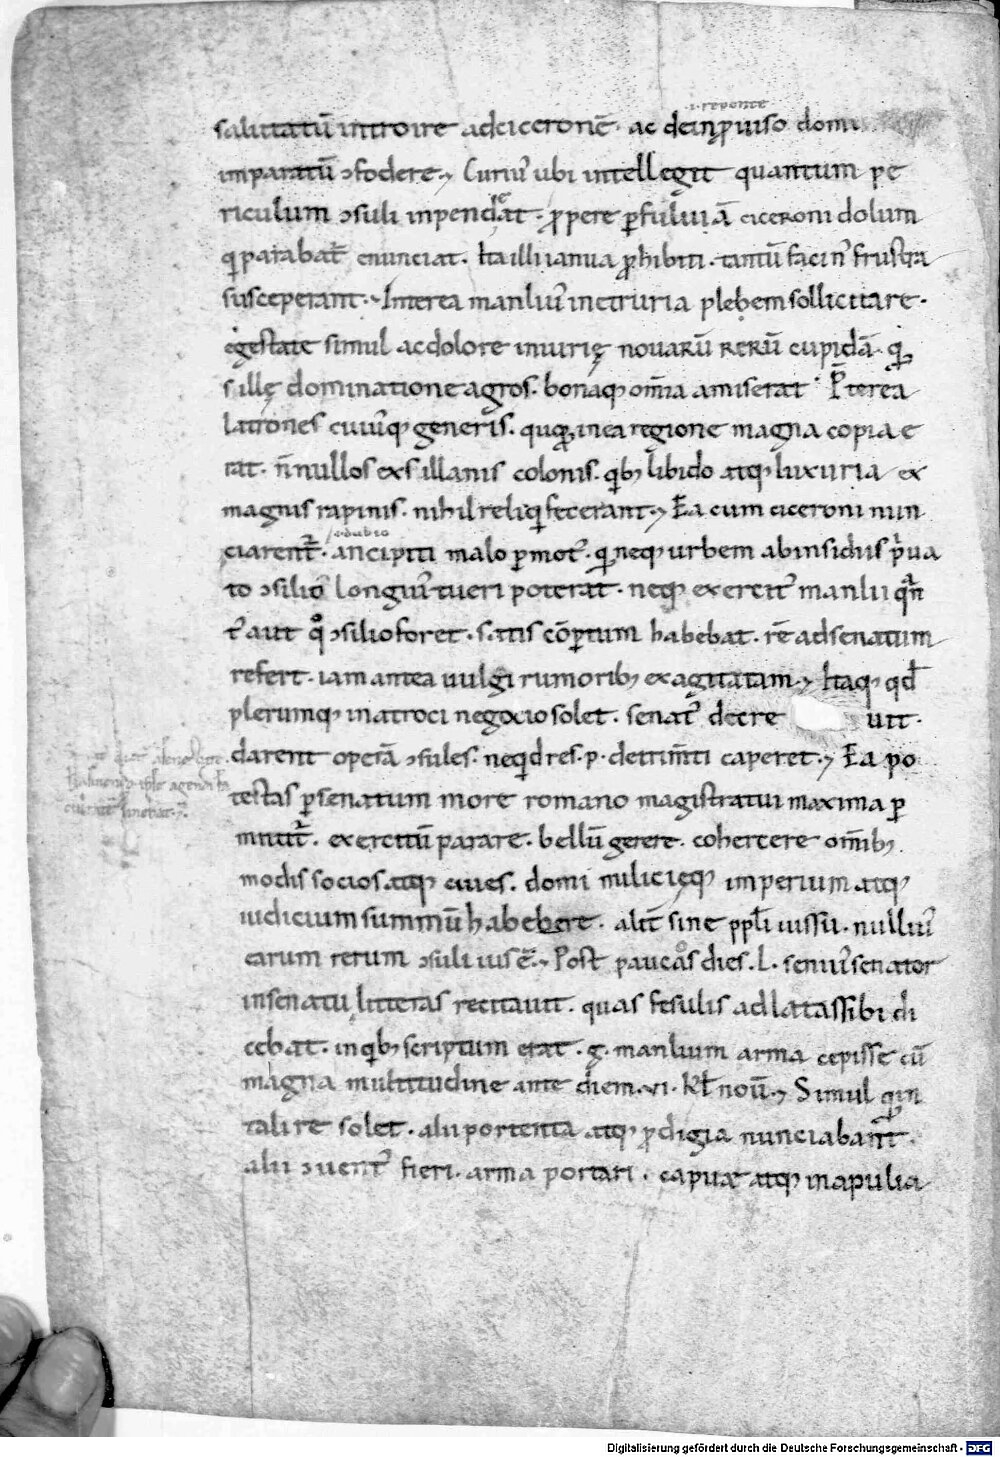 .i. repente
salutatū introire adciceronē. ac deinꝓuiso domi
imparatū ɔfodere. Curiꝰ ubi intellegit quantum pe
riculum ɔsuli inpendeat. ꝓpere ꝑfuluiā ciceroni dolum
qͥ parabat̄ enunciat. Ita illi ianua ꝓhibiti. tantū facinꝰ frustra
susceperant. Interea manliꝰ inetruria plebem sollicitare.
egestate simul acdolore iniurię nouarū rerū cupidā. qꝫ
sillę dominatione agros. bonaqꝫ om̄ia amiserat. P̄terea
latrones cuiusqꝫ generis. quoꝝ inea regione magna copia e
rat. n̄nullos exsillanis colonis. qͥbꝫ libido atqꝫ luxuria ex
magnis rapinis. nihil reliqͥ fecerant. Ea cum ciceroni nun
.i. dubio
ciarent᷑. ancipiti malo ꝑmotꝰ. qͥ neqꝫ urbem abinsidiis pͥua
to ɔsilio longiꝰ tueri poterat. neqꝫ exercitꝰ manlii qͣn
tꝰ aut qͦ ɔsilio foret. satis cōꝑtum habebat. rē adsenatum
refert. iam antea uulgi rumoribꝫ exagitatam. Itaqꝫ qd̄
plerumqꝫ inatroci negocio solet. senatꝰ decre uit.
darent operā ɔsules. neqͥd res .p. detrim̄ti caperet. Ea po
testas ꝑsenatum more romano magistratui maxima ꝑ
mittit᷑. exercitū parare. bellū gerere. cohercere om̄ibꝫ
modis socios atqꝫ ciues. domi milicięqꝫ imperium atqꝫ
iudicium summū habere. alit̄ sine ppl̄i iussu. nulliꝰ
earum rerum ɔsuli ius ē. Post paucos dies .L. seniꝰ senator
insenatu litteras recitauit. quas fesulis adlatas sibi di
cebat. inqͥbꝫ scriptum erat .g. manlium arma cepisse cū
magna multitudine ante diem .vi. kl̄ nou̅. Simul qͥ in
tali re solet. alii portenta atqꝫ ꝓdigia nunciabant.
alii ɔuentꝰ fieri. arma portari. capuae atqꝫ inapulia
Digitalisierung gefördert durch die Deutsche Forschungsgemeinschaft - DFG